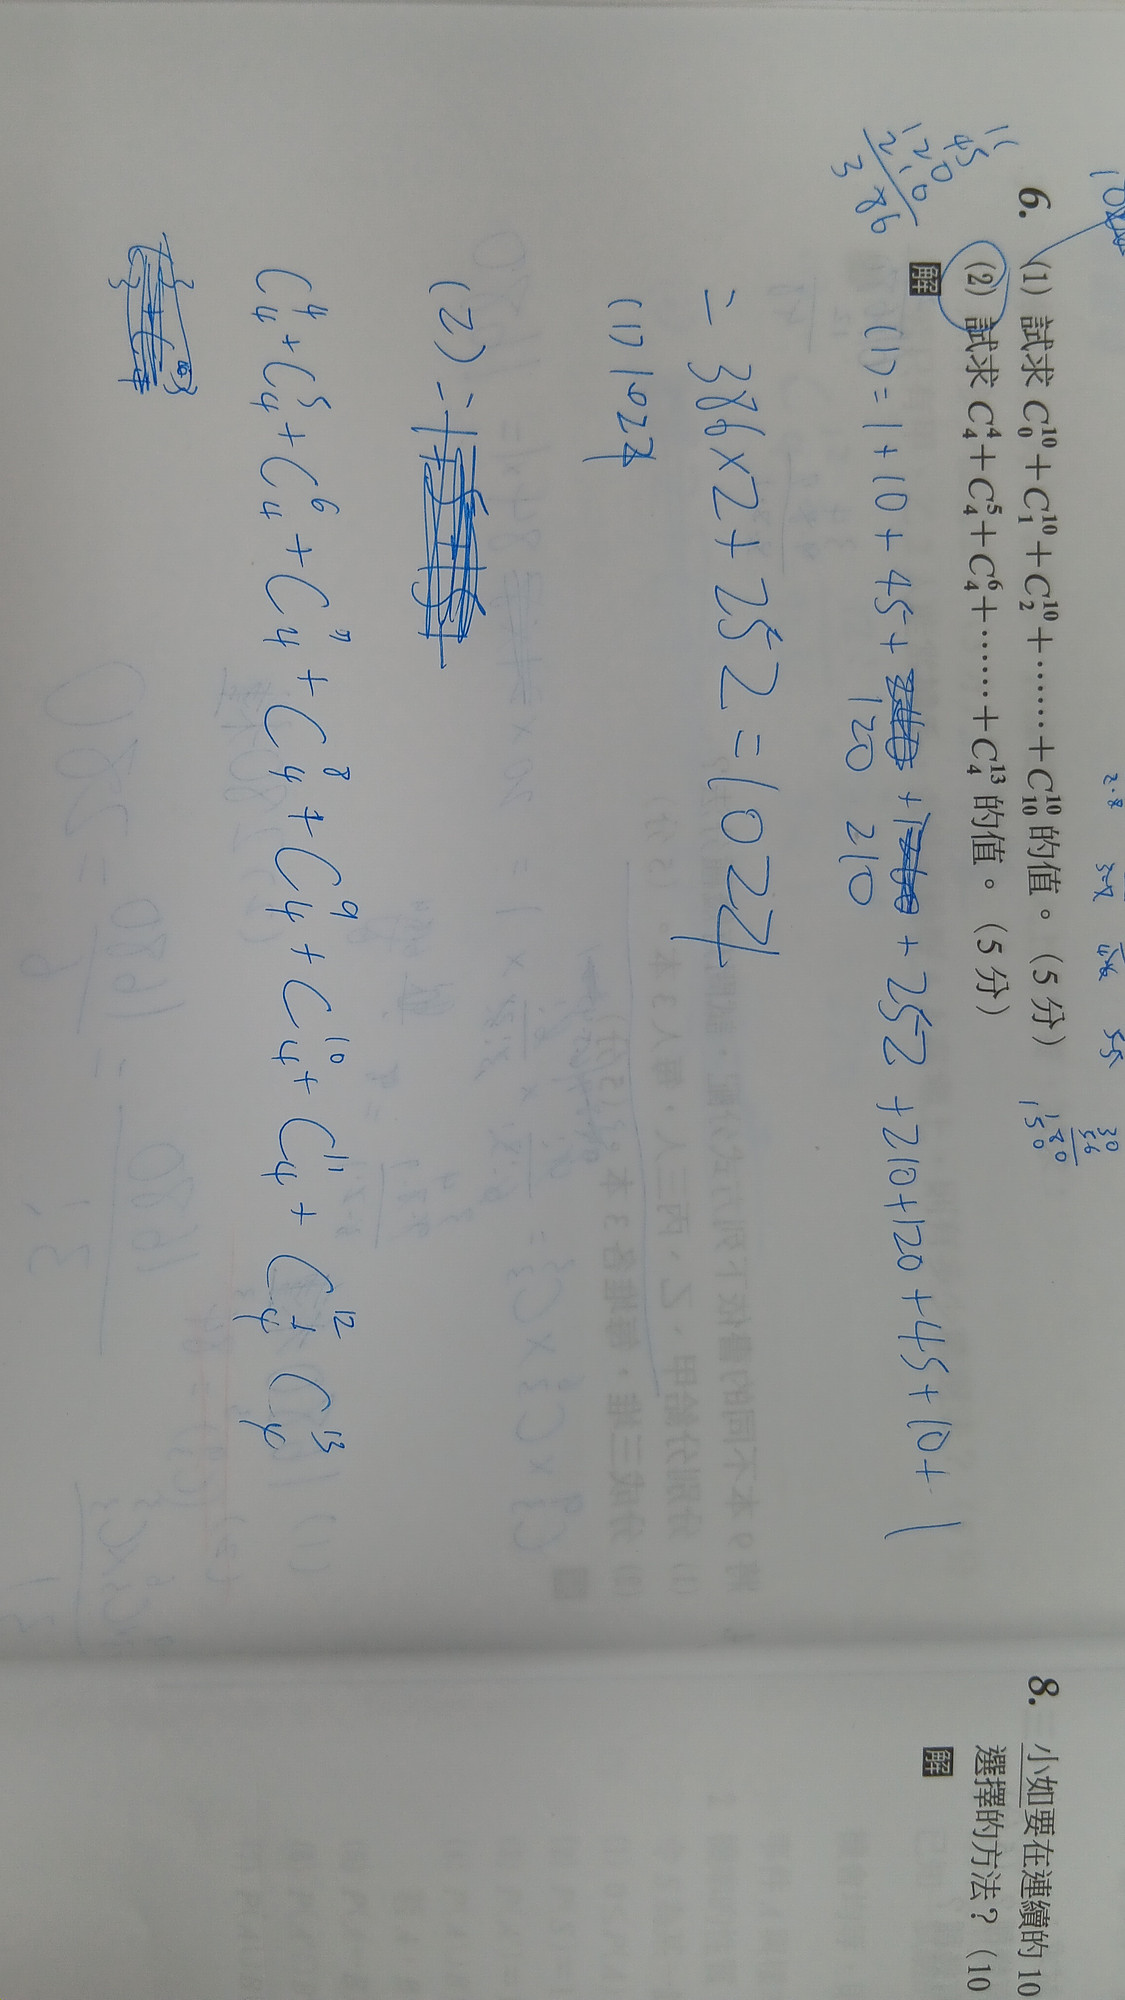 6. (1) 試求 C₀¹⁰+C₁¹⁰+C₂¹⁰+……+C₁₀¹⁰ 的值。(5 分)
(2) 試求 C₄⁴+C₄⁵+C₄⁶+……+C₄¹³ 的值。(5 分)
解
(1) = 1 + 10 + 45 + 120 + 210 + 252 + 210 + 120 + 45 + 10 + 1
= 386 × 2 + 252 = 1024
(1) 1024
(2) =
C₄⁴ + C₄⁵ + C₄⁶ + C₄⁷ + C₄⁸ + C₄⁹ + C₄¹⁰ + C₄¹¹ + C₄¹² + C₄¹³
11
45
120
210
386
30
56
180
150
8. 小如要在連續的 10
選擇的方法？(10
解